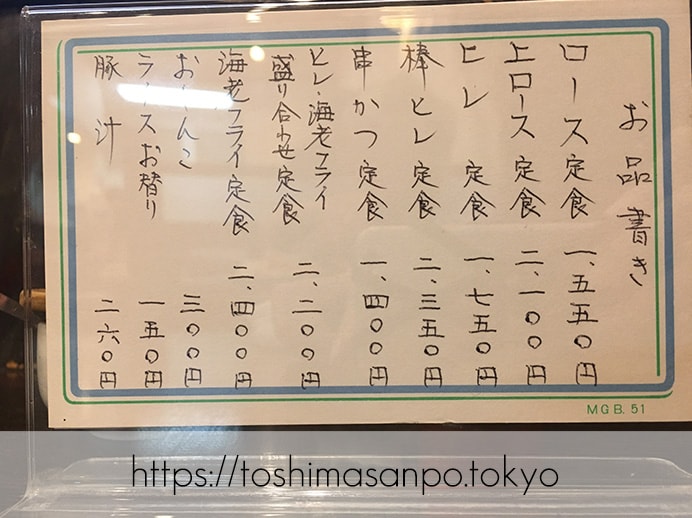 お品書き
ロース定食 一、五五〇円
上ロース定食 二、一〇〇円
ヒレ定食 一、七五〇円
棒ヒレ定食 二、三五〇円
串かつ定食 一、四〇〇円
ヒレ・海老フライ
盛り合わせ定食 二、二〇〇円
海老フライ定食 二、四〇〇円
おしんこ 三〇〇円
ライスお替り 一五〇円
豚汁 二六〇円
MGB. 51
https://toshimasanpo.tokyo